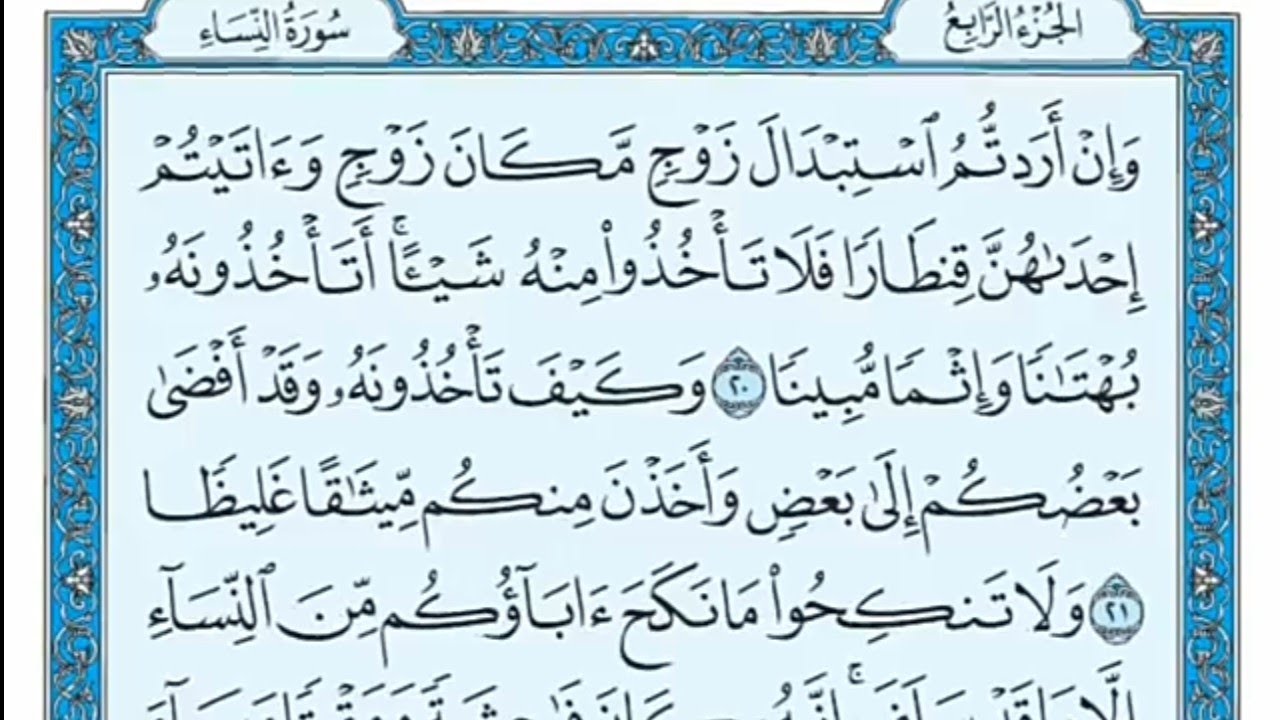 الجُزْءُ الرَّابِعُ
سُورَةُ النِّسَاءِ
وَإِنۡ أَرَدتُّمُ ٱسۡتِبۡدَالَ زَوۡجٖ مَّكَانَ زَوۡجٖ وَءَاتَيۡتُمۡ
إِحۡدَىٰهُنَّ قِنطَارٗا فَلَا تَأۡخُذُواْ مِنۡهُ شَيۡـًٔاۚ أَتَأۡخُذُونَهُۥ
بُهۡتَٰنٗا وَإِثۡمٗا مُّبِينٗا ٢٠ وَكَيۡفَ تَأۡخُذُونَهُۥ وَقَدۡ أَفۡضَىٰ
بَعۡضُكُمۡ إِلَىٰ بَعۡضٖ وَأَخَذۡنَ مِنكُم مِّيثَٰقًا غَلِيظٗا
٢١ وَلَا تَنكِحُواْ مَا نَكَحَ ءَابَآؤُكُم مِّنَ ٱلنِّسَآءِ
إِلَّا مَا قَدۡ سَلَفَۚ إِنَّهُۥ كَانَ فَٰحِشَةٗ وَمَقۡتٗا وَسَآءَ